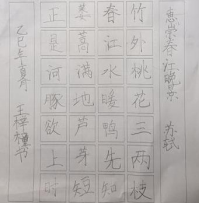 惠崇春江晓景 苏轼
竹外桃花三两枝
春江水暖鸭先知
蒌蒿满地芦芽短
正是河豚欲上时
乙巳年月 王梓书